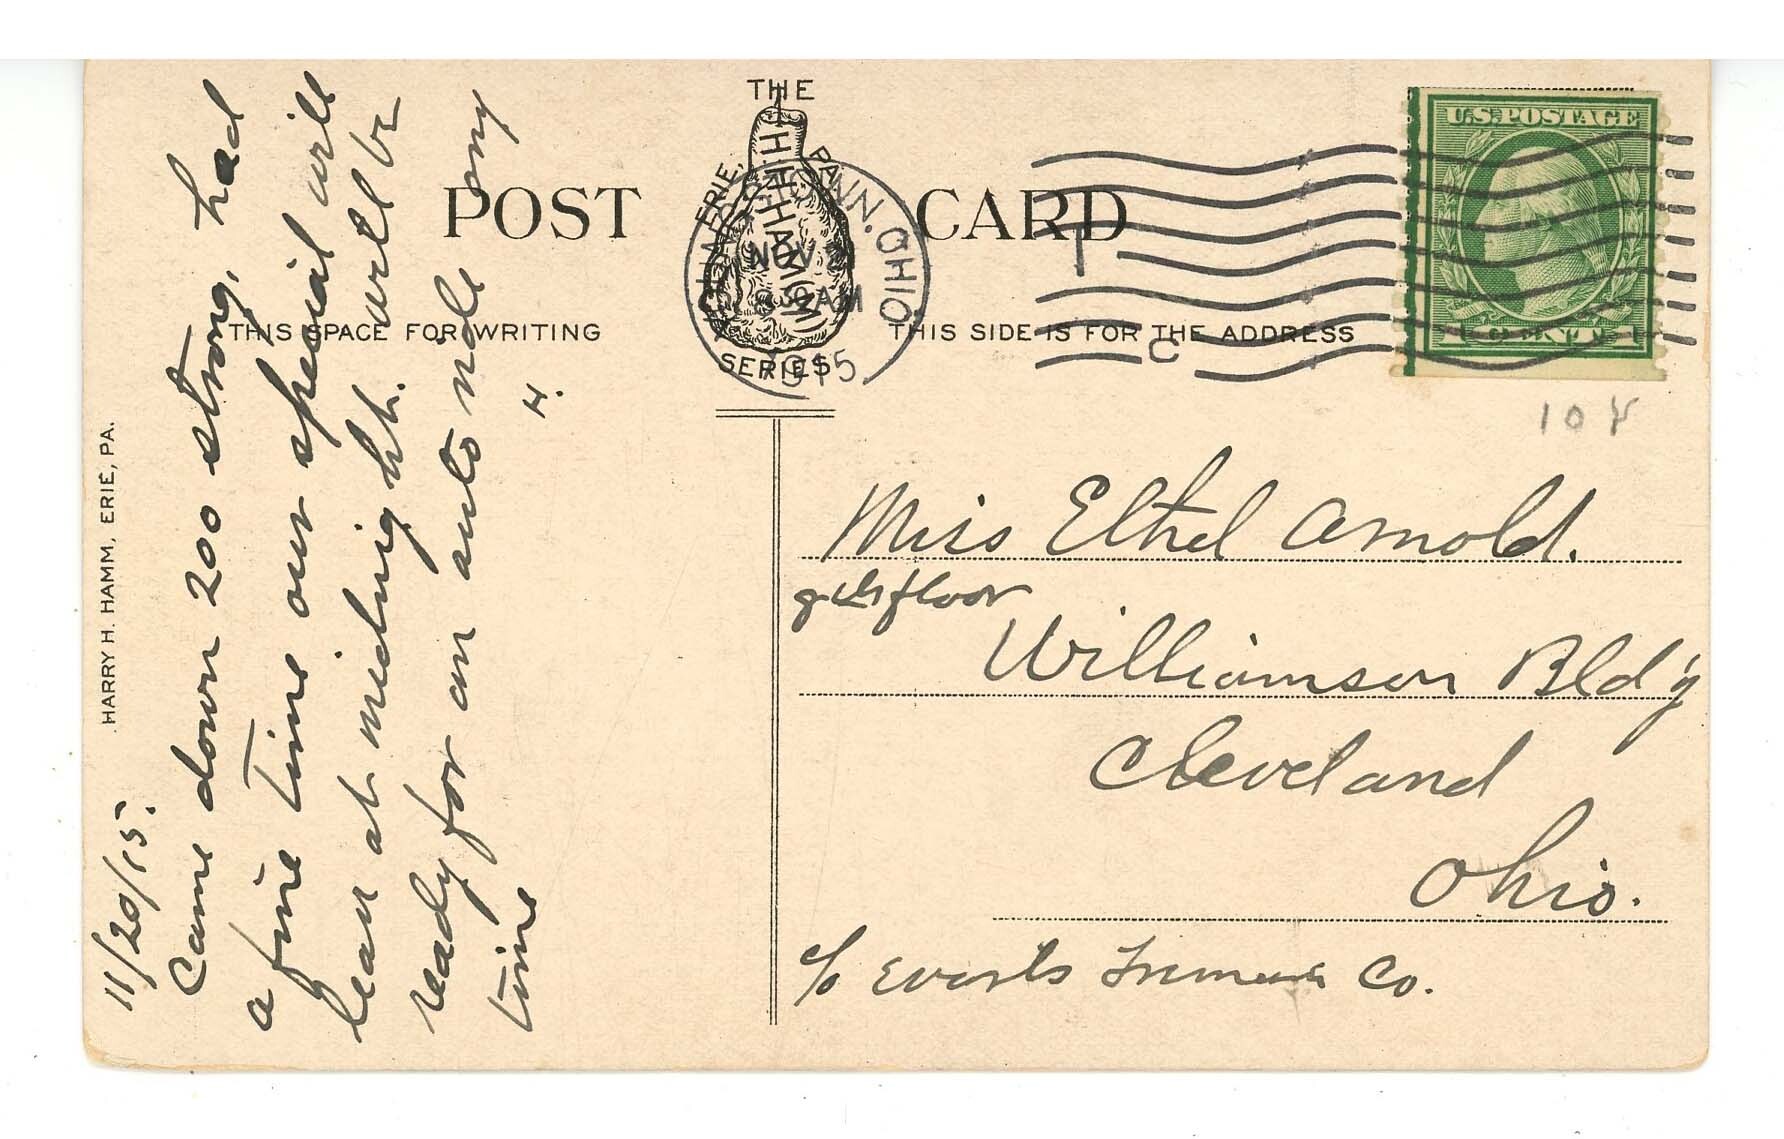 THE
H.H.HAMM
ERIE, PA.
SERIES
POST CARD
THIS SPACE FOR WRITING
THIS SIDE IS FOR THE ADDRESS
NN. OHIO
NOV 2
30 AM
1915
U.S. POSTAGE
1 CENT 1
HARRY H. HAMM, ERIE, PA.
11/20/15.
Came down 200 strong, had
a fine time our special will
leav at midnight. will be
ready for an auto ride any
time
H.
10
Miss Ethel Arnold.
floor
Williamson Bld'g
Cleveland
Ohio.
c/o Evarts Co.